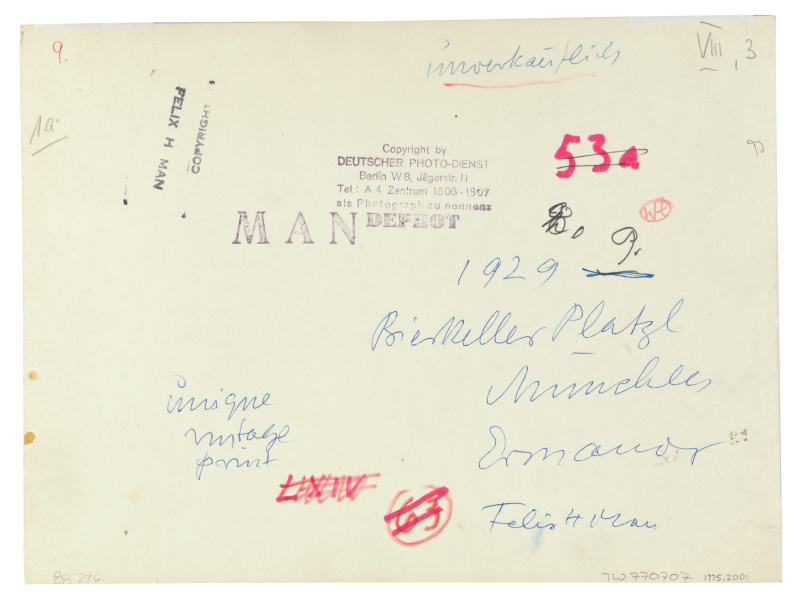 9.
unverkäuflich
VIII, 3
1a.
COPYRIGHT
FELIX H MAN
Copyright by
DEUTSCHER PHOTO-DIENST
Berlin W 8, Jägerstr. 11
Tel.: A 4 Zentrum 1806-1807
als Photograph zu nennen:
MAN DEPHOT
53a
B. P.
1929
Bierkeller Platzl
München
unique
vintage
print
LXIV
63
Felix H Man
88:276
TW770707 1775.2001